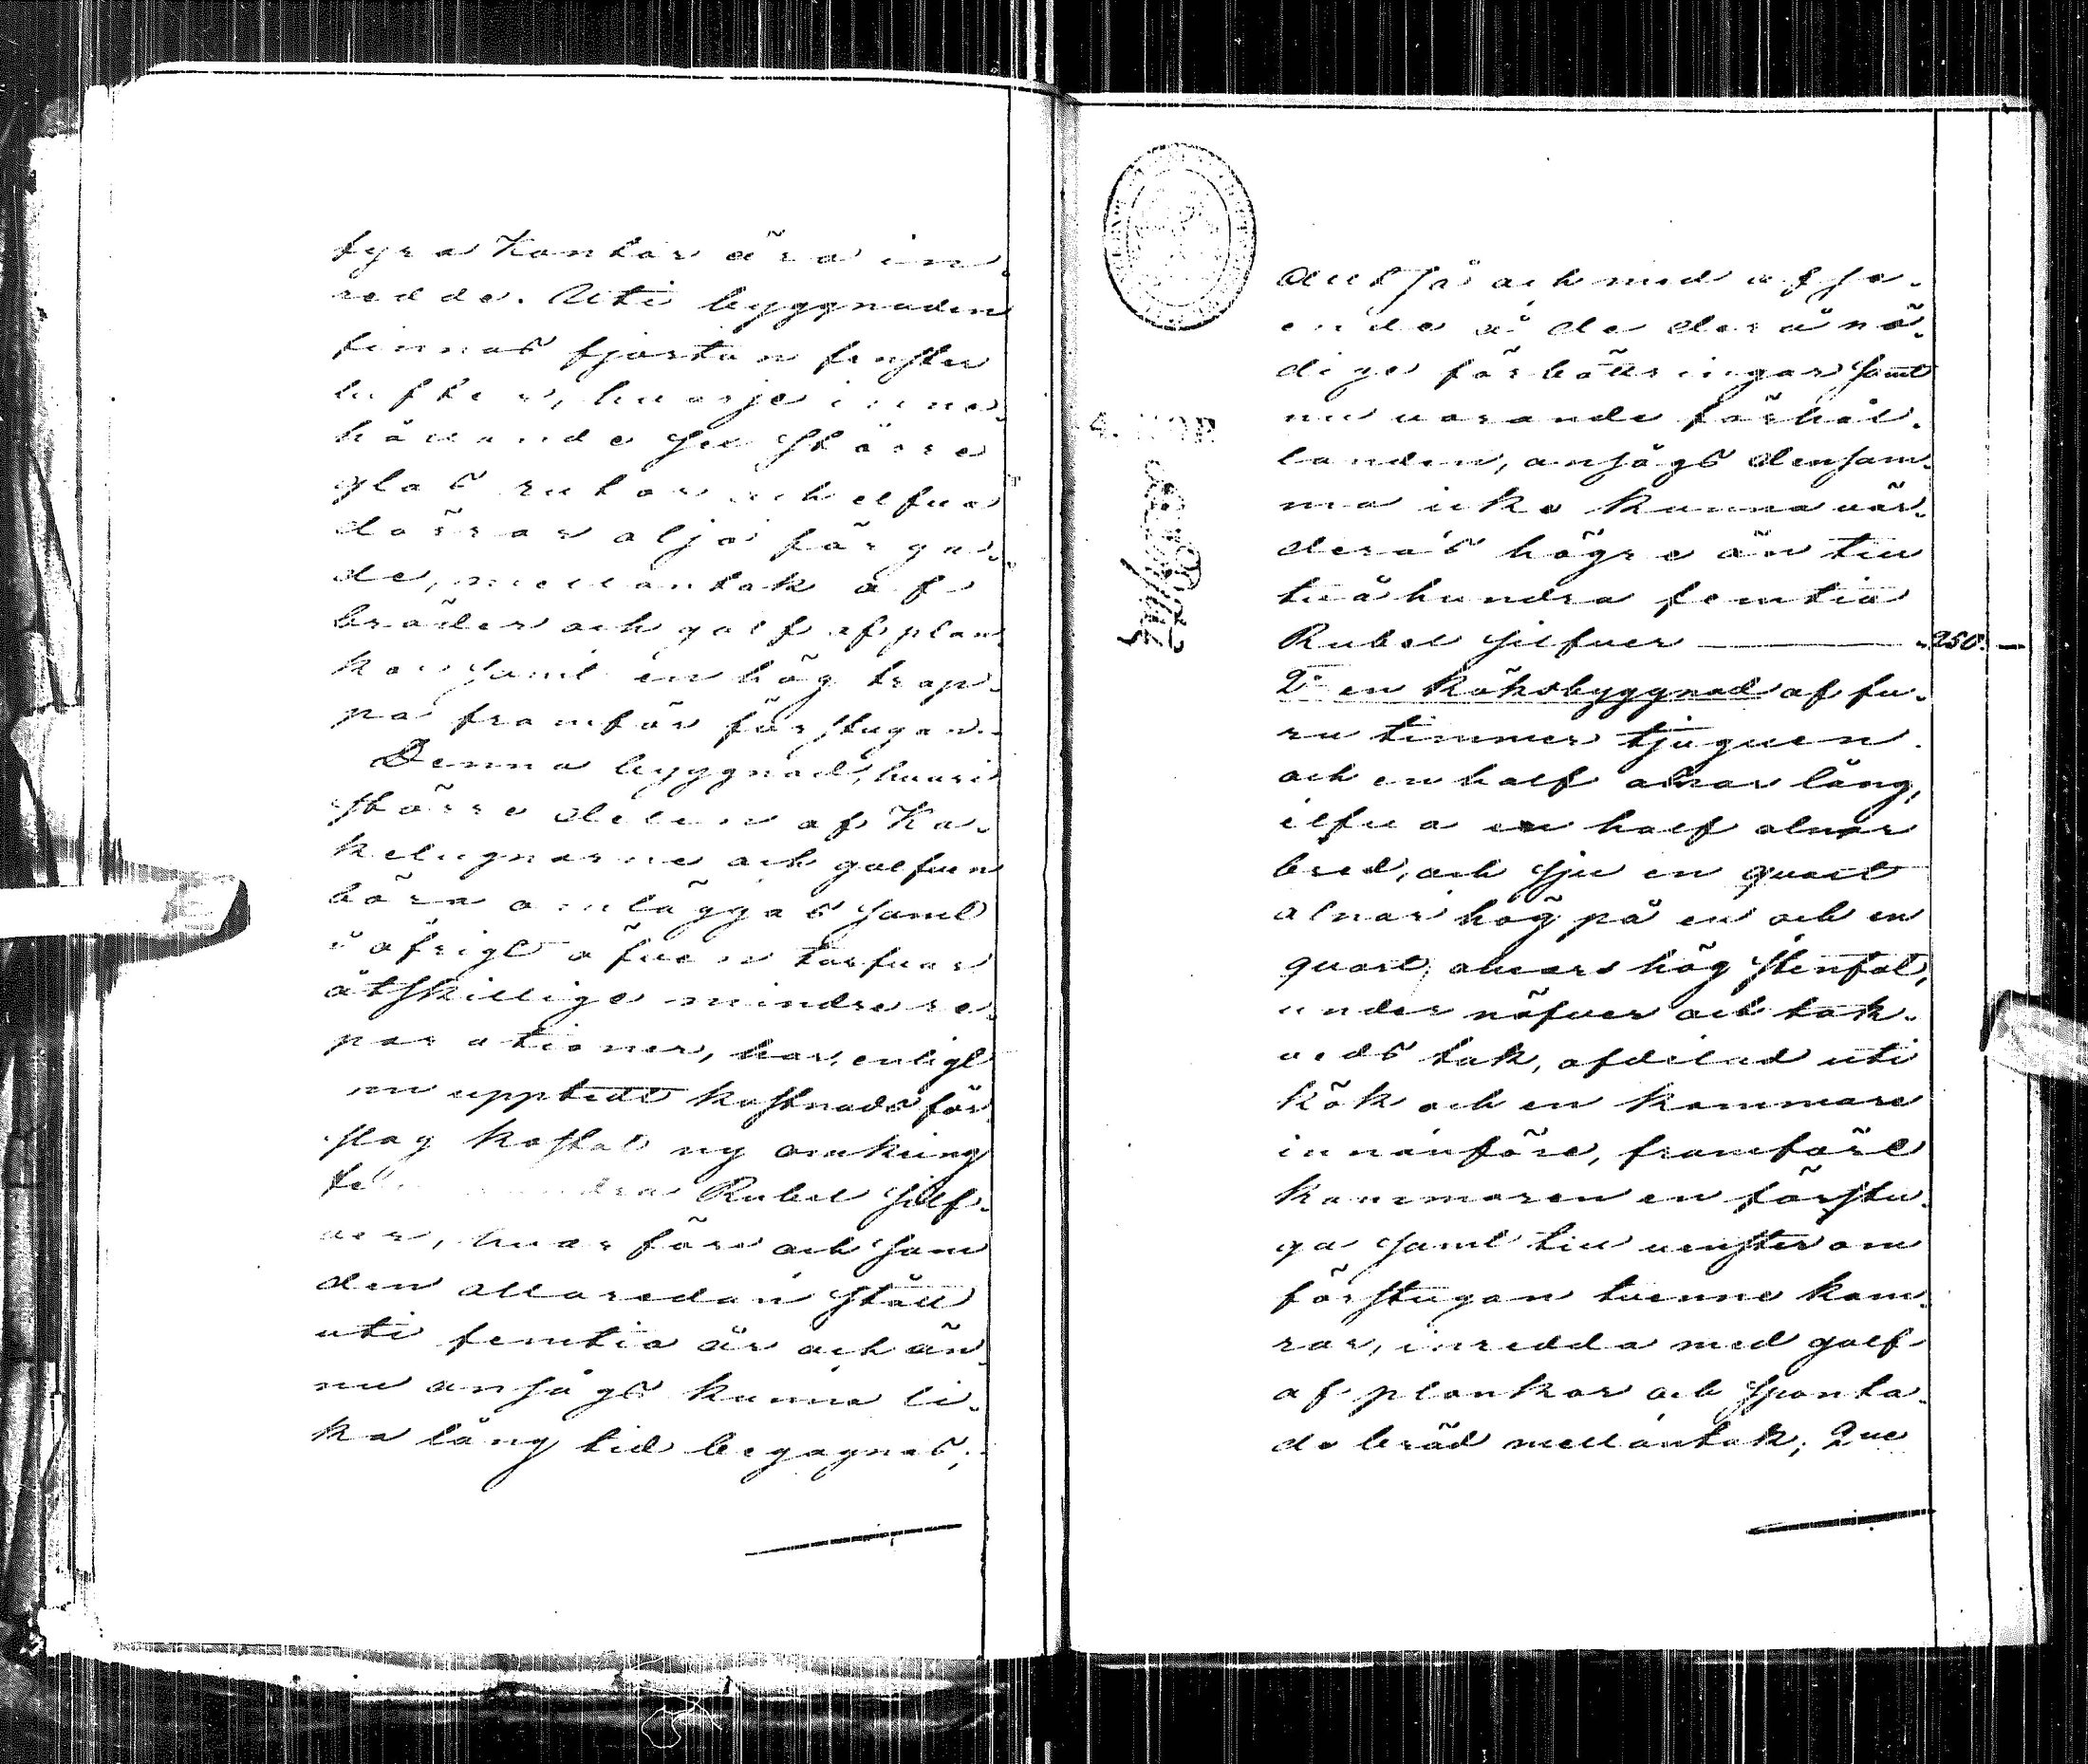 fyra Kantor ära in-
redde. Uti byggnaden
finnas fjorton fenster
lufter, hvarje inne-
hållande sex större
glas rutor och elfva
dörrar olje färga-
de, mellantak af
bräder och golf af plan-
kor samt en hög trap-
pa framför förstugan.
Denna byggnad, hvari
större delen af Ka-
kelugnarne och golfven
böra omläggas samt
i öfrigt äfven tarfvar
åtskillige mindre re-
parationer, har, enligt
nu upptedt kostnads för
slag kostat ny omkring
Rubel Silf-
ver, hvarföre och som
den allaredan stått
uti femtio år och än-
nu ansågs kunna li-
ka lång tid begagnas;
altså och med afse-
ende å de derå nö-
dige förbättringar samt
nu varande förhål-
landen, ansågs densam-
ma icke kunna vär-
deras högre än till
tvåhundra femtio
Rubel Silfver 250.
2o en Köksbyggnad af fu-
ru timmer tjugueen
och en half alnar lång,
elfva en half alnar
bred, och sju en quart
alnar hög på en och en
quart alnars hög stenfot,
under näfver och tak-
veds tak, afdelad uti
Kök och en kammare
innanföre, framföre
kammaren en förstu-
ga samt till venster om
förstugan tvenne kam-
rar, inredda med golf
af plankor och sponta-
de bräd mellantak; Två